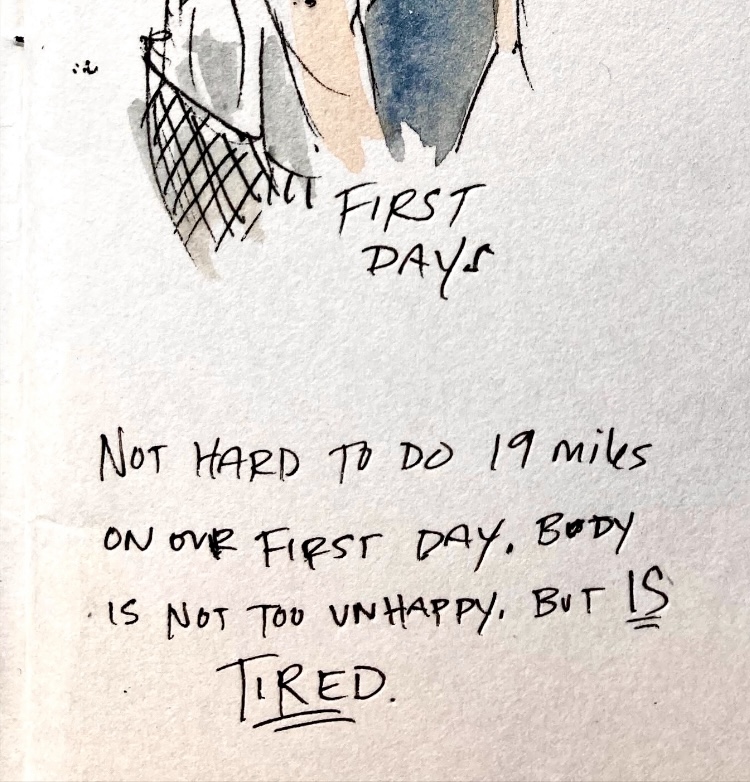 FIRST
DAYS
NOT HARD TO DO 19 miles
ON OUR FIRST DAY. BODY
IS NOT TOO UNHAPPY. BUT IS
TIRED.